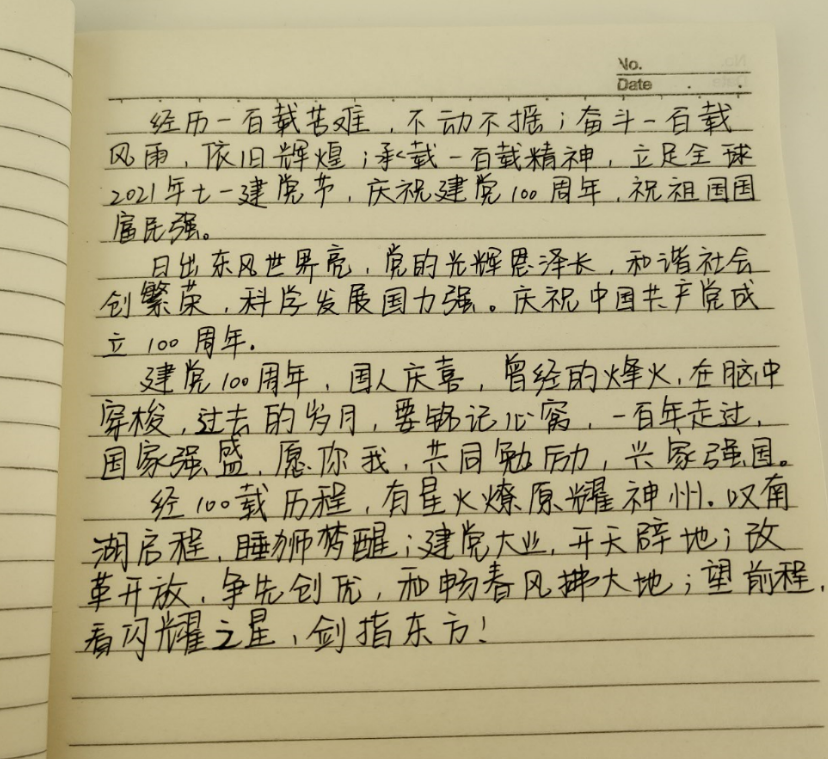 No.
Date
经历一百载苦难，不动不摇；奋斗一百载
风雨，依旧辉煌；承载一百载精神，立足全球
2021年七一建党节，庆祝建党100周年，祝祖国国
富民强。
日出东风世界亮，党的光辉恩泽长，和谐社会
创繁荣，科学发展国力强。庆祝中国共产党成
立100周年.
建党100周年，国人庆喜，曾经的烽火，在脑中
穿梭，过去的岁月，要铭记心窝，一百年走过，
国家强盛，愿你我，共同勉励，兴家强国。
经100载历程，有星火燎原耀神州.叹南
湖启程，睡狮梦醒；建党大业，开天辟地；改
革开放，争先创优，和畅春风拂大地；望前程，
看闪耀之星，剑指东方！